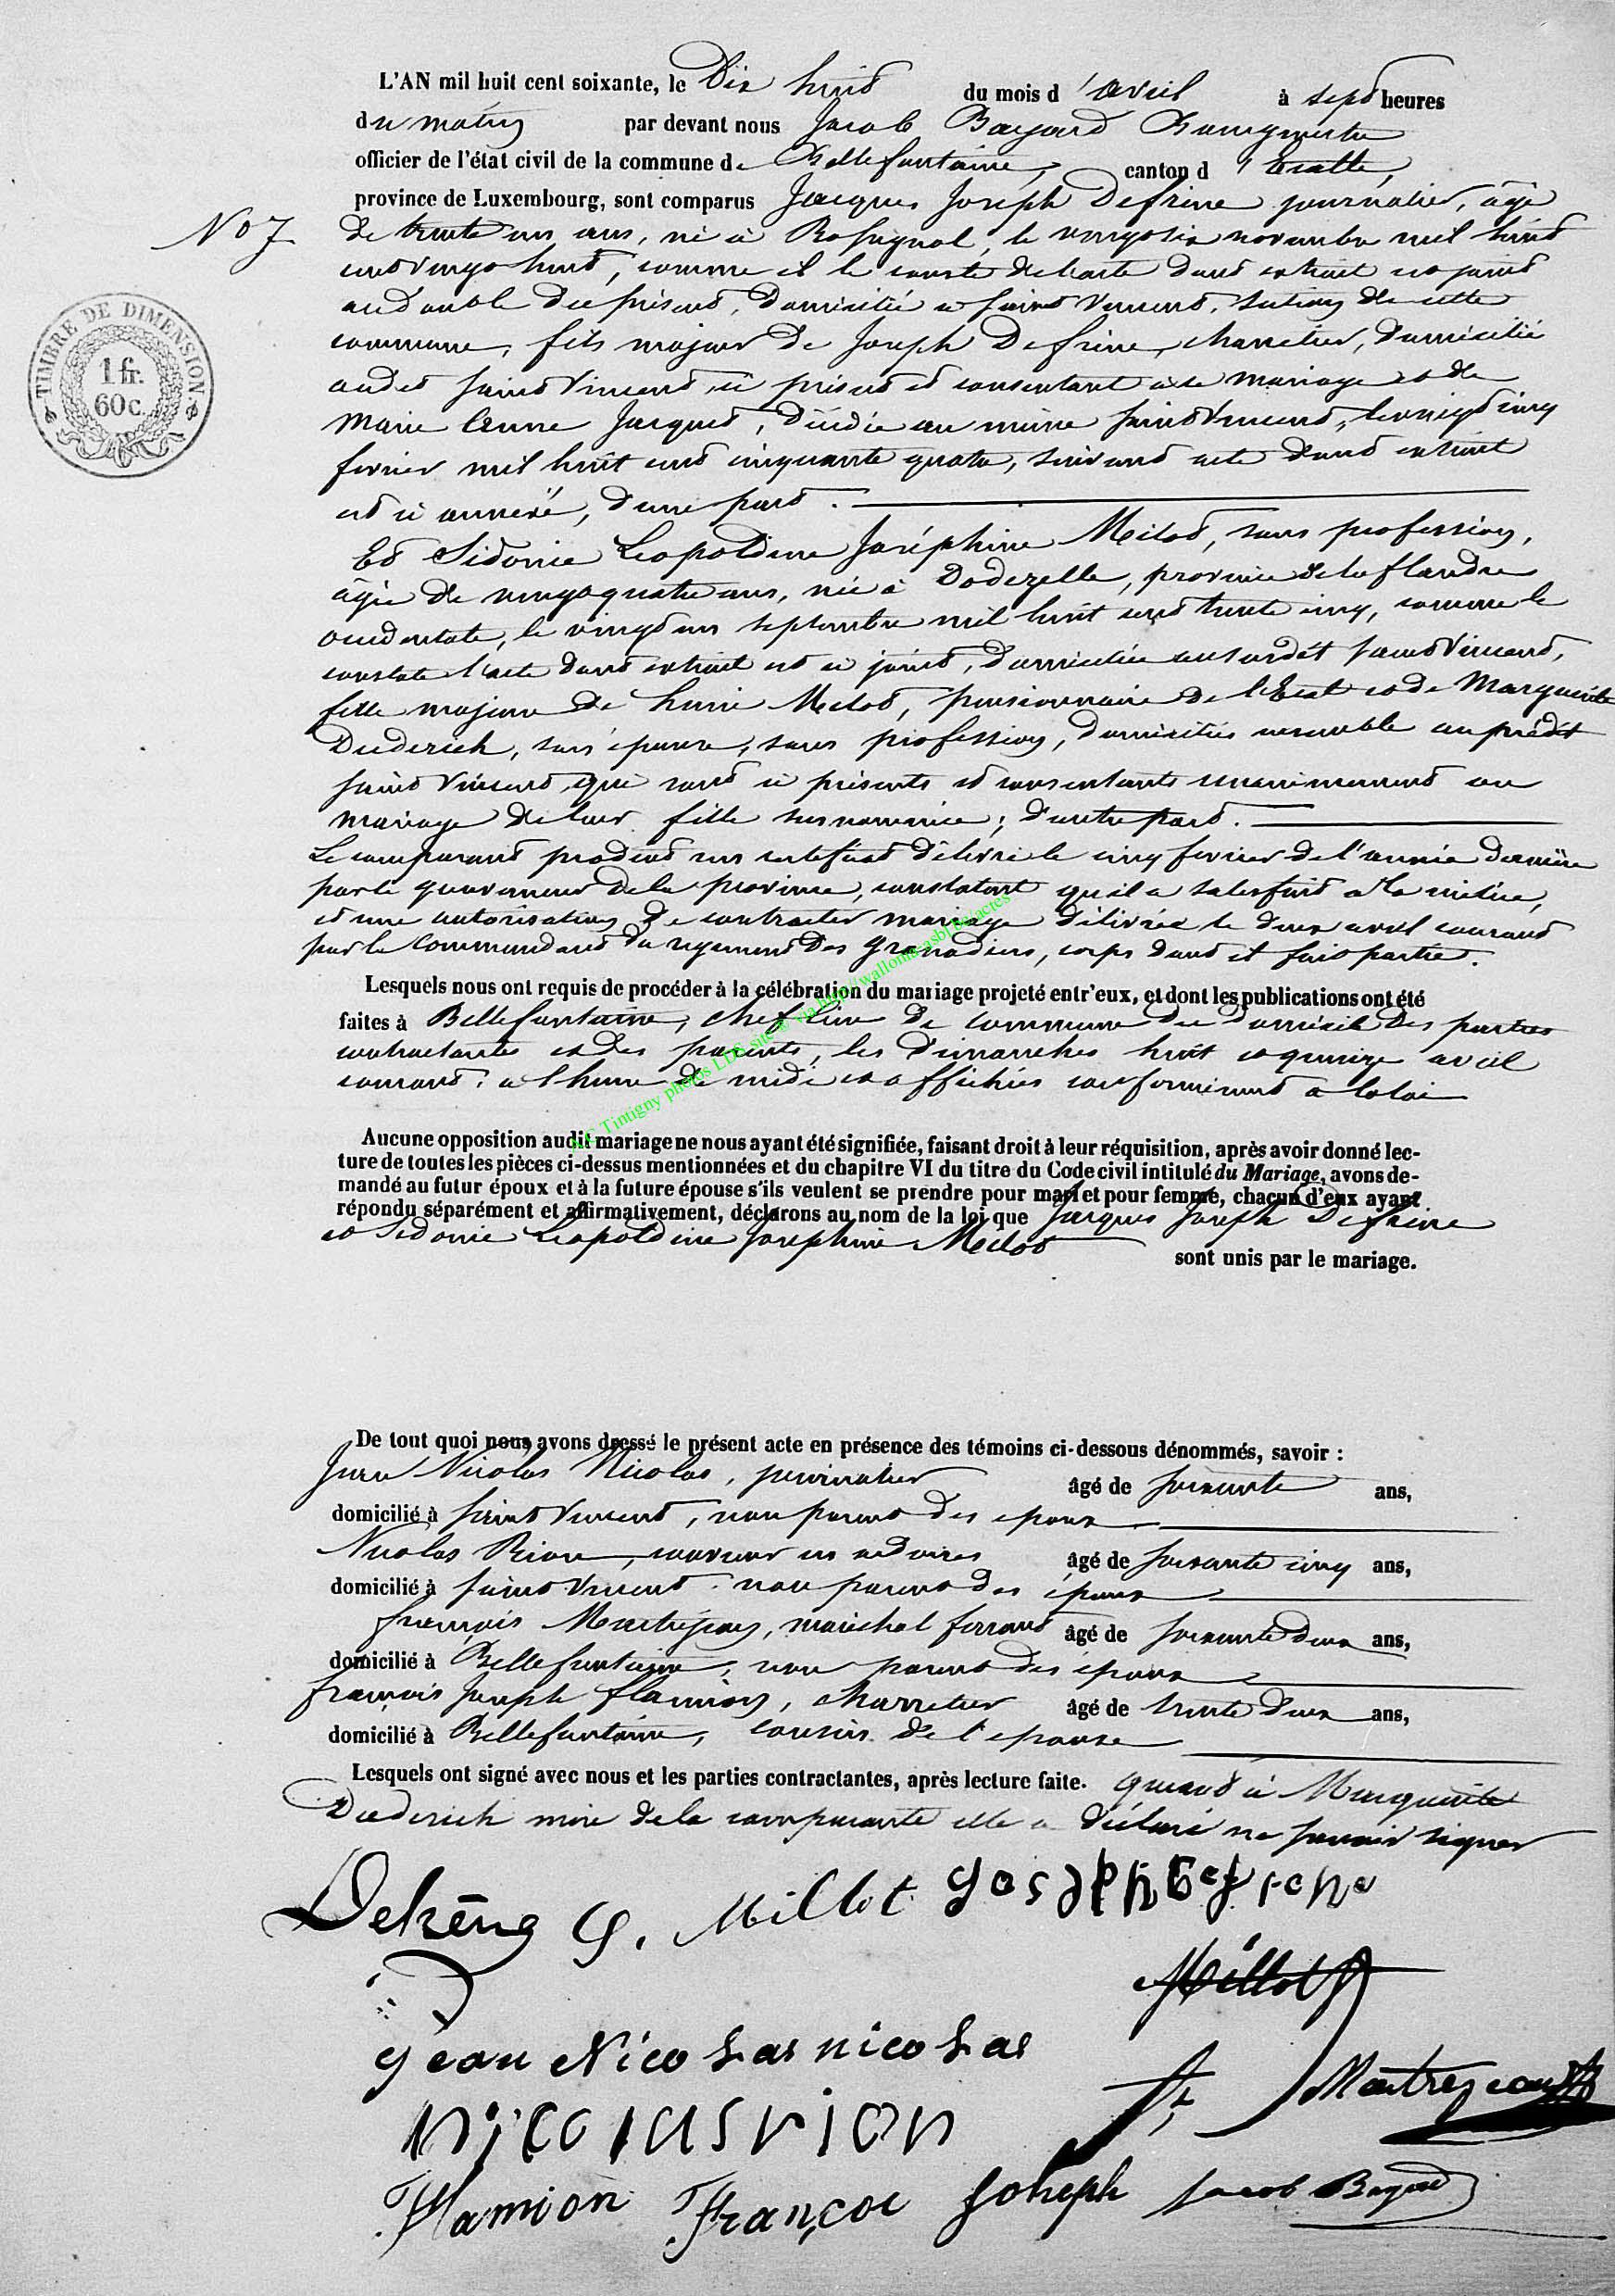 L'AN mil huit cent soixante, le Dix huit du mois d'avril à sept heures
du matin par devant nous Jacob Bayard Bourgmestre
officier de l'état civil de la commune de Bellefontaine, canton d'Etalle,
province de Luxembourg, sont comparus Jacques Joseph Defrène journalier, âgé
No 7 de trente un ans, né à Rossignol, le vingt six novembre mil huit
cent vingt huit, comme il le conste de l'acte dont extrait est joint
au double du présent, domicilié à Saint Vincent, section de cette
commune, fils majeur de Joseph Defrène, charretier, domicilié
audit Saint Vincent, ci présent et consentant à ce mariage et de
Marie Anne Jacques, décédée au même Saint Vincent, le vingt cinq
fevrier mil huit cent cinquante quatre, suivant acte dont extrait
est ci annexé, d'une part.
Et Sidonie Leopoldine Joséphine Melot, sans profession,
âgée de vingt quatre ans, née à Dodezelle, province de la flandre
occidentale, le vingt un septembre mil huit cent trente cinq, comme le
constate l'acte dont extrait est ci joint, domiciliée au susdit Saint Vincent,
fille majeure de Melot, pensionnaire de l'Etat et de Marguerite
Diederich, son épouse, sans profession, domiciliés ensemble au prédit
Saint Vincent, qui sont ci présents et consentants unanimement au
mariage de leur fille susnommée; d'autre part.
Le comparant produit un certificat délivré le cinq fevrier de l'année dernière
par le gouverneur de la province, constatant qu'il a satisfait à la milice,
et une autorisation de contracter mariage délivrée le deux avril courant
par le Commandant du régiment des grenadiers, corps dont il fait partie.
Lesquels nous ont requis de procéder à la célébration du mariage projeté entr'eux, et dont les publications ont été
faites à Bellefontaine, chef lieu de commune du domicile des parties
contractantes et des parents, les dimanches huit et quinze avril
courant, à l'heure de midi et affichées conformément à la loi
Aucune opposition audit mariage ne nous ayant été signifiée, faisant droit à leur réquisition, après avoir donné lec-
ture de toutes les pièces ci-dessus mentionnées et du chapitre VI du titre du Code civil intitulé du Mariage, avons de-
mandé au futur époux et à la future épouse s'ils veulent se prendre pour mari et pour femme, chacun d'eux ayant
répondu séparément et affirmativement, déclarons au nom de la loi que Jacques Joseph Defrène
et Sidonie Leopoldine Josephine Melot sont unis par le mariage.
De tout quoi nous avons dressé le présent acte en présence des témoins ci-dessous dénommés, savoir :
Jean Nicolas Nicolas, journalier âgé de soixante ans,
domicilié à Saint Vincent, non parent des epoux
Nicolas Rion, couvreur en ardoises âgé de soixante cinq ans,
domicilié à Saint Vincent, non parent des époux
françois Martrejean, maréchal ferrant âgé de soixante deux ans,
domicilié à Bellefontaine, non parent des époux
françois Joseph flamion, charretier âgé de trente deux ans,
domicilié à Bellefontaine, cousin de l'epouse
Lesquels ont signé avec nous et les parties contractantes, après lecture faite. quant à Marguerite
Diederich mère de la comparante elle a déclaré ne savoir signer
Defrêne S. Millot Joseph Defrene
Millot
jean Nicolas nicolas
nicolas rion
flamion françoi Joseph Jacob Bayard
TIMBRE DE DIMENSION
1 fr.
60 c.
AC Tintigny photos LDG site © via http://wallonia-asbl.be/actes